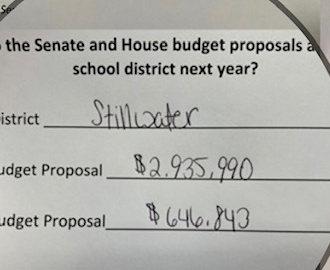 the Senate and House budget proposals a
school district next year?
istrict Stillwater
udget Proposal $2.935,990
udget Proposal $646.843